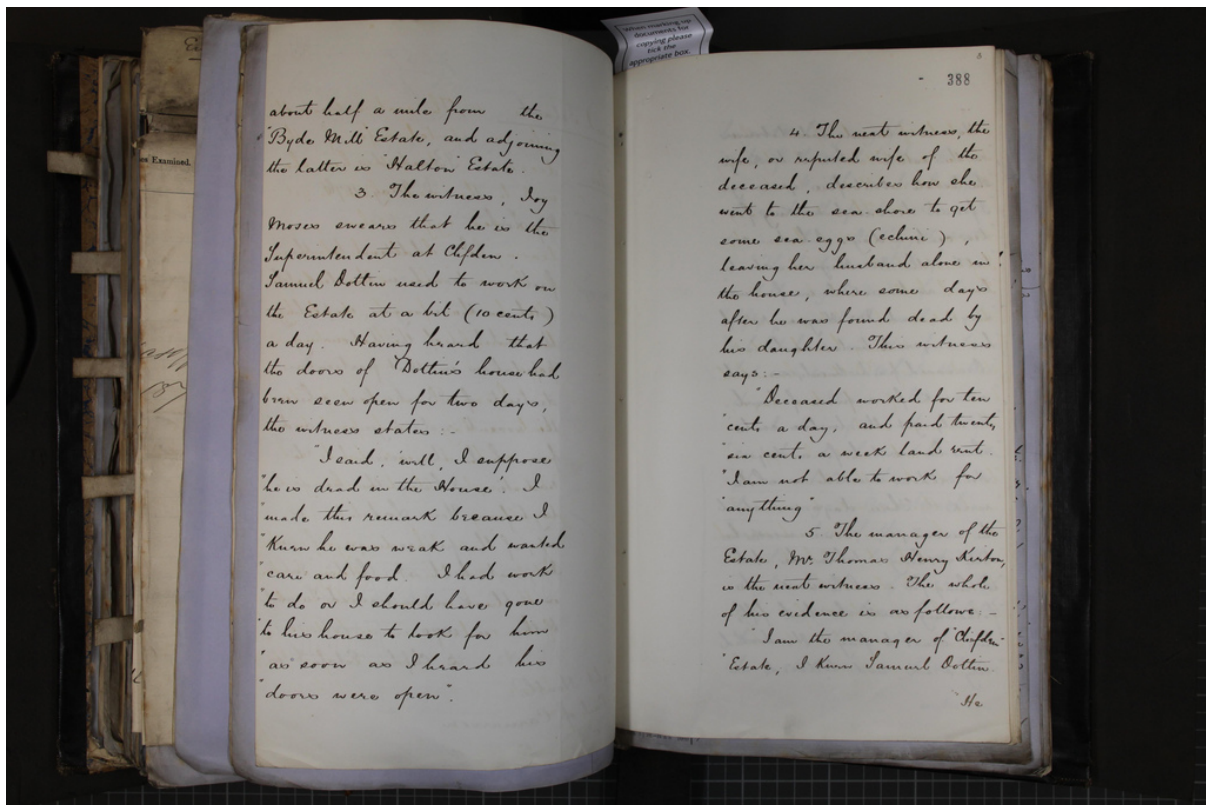 about half a mile from the
"Byde Mill" Estate, and adjoining
the latter is "Halton" Estate.
3. The witness, Joy
Moses swears that he is the
Superintendent at Clifden.
Samuel Dottin used to work on
the Estate at a bit (10 cents)
a day. Having heard that
the doors of Dottin's house had
been seen open for two days,
the witness states:-
"I said, 'well, I suppose
"he is dead in the House'. I
"made this remark because I
"Knew he was weak and wanted
"care and food. I had work
"to do or I should have gone
"to his house to look for him
"as soon as I heard his
"doors were open".
es Examined.
When marking up
documents for
copying please
tick the
appropriate box.
388
4 The next witness, the
wife, or reputed wife of the
deceased, describes how she
went to the sea-shore to get
some sea-eggs (echini),
leaving her husband alone in
the house, where some days
after he was found dead by
his daughter. This witness
says:-
"Deceased worked for ten
"cents a day, and paid twenty
"six cents a week land rent.
"I am not able to work for
"anything"
5. The manager of the
Estate, Mr. Thomas Henry Kirton,
is the next witness. The whole
of his evidence is as follows:-
"I am the manager of "Clifden"
"Estate, I Knew Samuel Dottin.
He